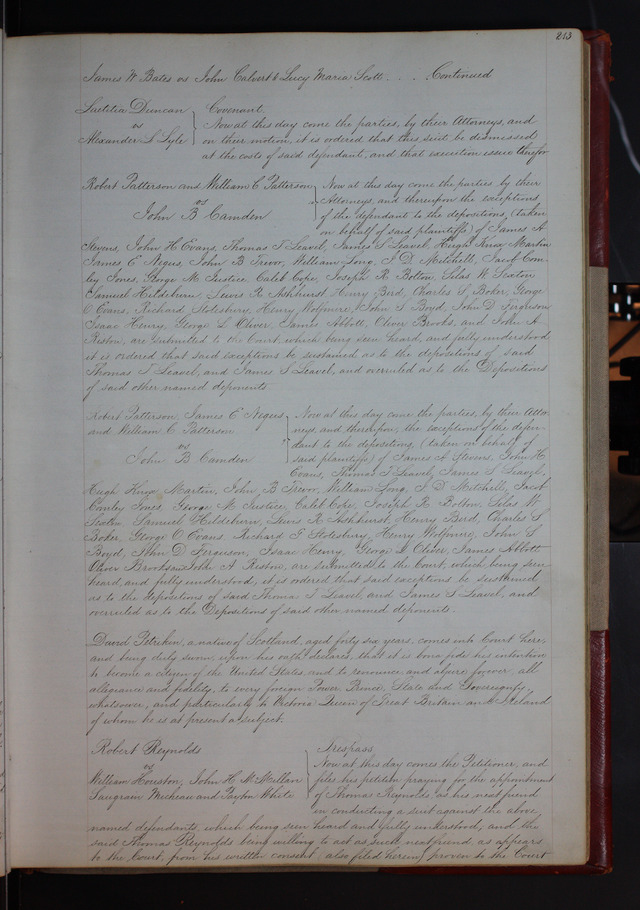 213
James W Bates vs John Calvert & Lucy Maria Scott . . . Continued
Laetitia Duncan
vs
Alexander S Lyle
Covenant.
Now at this day come the parties, by their Attorneys, and
on their motion, it is ordered that this suit be dismissed,
at the costs of said defendant, and that execution issue therefor
Robert Patterson and William C Patterson
vs
John B Camden
Now at this day come the parties by their
Attorneys, and thereupon the exceptions
of the defendant to the depositions, (taken
on behalf of said plaintiffs) of James A
Stevens, John H Evans, Thomas T Leavel, James S Leavel, Hugh Knox Martin
James E Negus, John B Trevor, William Long, J D Mitchell, Jacob Con-
ley Jones, George M Justice, Caleb Cope, Joseph R Bolton, Silas W Sexton
Samuel Hildeburn, Lewis R Ashhurst Henry Bird, Charles S Boker, George
O Evans, Richard Stolesbury, Henry Wolfmire, John S Boyd, John D Ferguson
Isaac Henry, George L Oliver, James Abbott, Oliver Brooks, and John A
Reston, are submitted to the Court, which being seen heard, and fully understood
it is ordered that said exceptions be sustained as to the depositions of said
Thomas T Leavel, and James S Leavel, and overruled as to the Depositions
of said other named deponents
Robert Patterson, James E Negus
and William C Patterson
vs
John B Camden
Now at this day come the parties, by their Attor
neys, and thereupon, the exceptions of the defen-
dant to the depositions, (taken on behalf of
said plaintiffs) of James A Stevens, John H
Evans, Thomas T Leavel, James S Leavel,
Hugh Knox Martin, John B Trevor, William Long, J D Mitchell, Jacob
Conley Jones, George M Justice, Caleb Cope, Joseph R Bolton, Silas W
Sexton Samuel Hildeburn, Lewis R Ashhurst, Henry Bird, Charles S
Boker, George O Evans, Richard F Stolesbury, Henry Wolfmire, John S
Boyd, John D Ferguson, Isaac Henry, George L Oliver, James Abbott
Oliver Brooks and John A Reston, are submitted to the Court, which being seen
heard, and fully understood, it is ordered that said exceptions be sustained
as to the depositions of said Thomas T Leavel, and James S Leavel, and
overruled as to the Depositions of said other named deponents.
David Petrikin, a native of Scotland, aged forty six years, comes into Court here,
and being duly sworn, upon his oath declares, that it is bona fide his intention
to become a citizen of the United States, and to renounce and abjure forever, all
allegiance and fidelity, to every foreign Power Prince, State and Sovereignty,
whatsoever, and particularly to Victoria Queen of Great Britain and Ireland
of whom he is at present a subject.
Robert Reynolds
vs
William Houston, John H McMillan
Micheau and Payton White
Trespass.
Now at this day comes the Petitioner, and
files his petition praying for the appointment
of Thomas Reynolds, as his next friend
in conducting a suit against the above
named defendants, which being seen heard and fully understood, and the
said Thomas Reynolds being willing to act as such next friend, as appears
to the Court, from his written consent, also filed herein, proven to the Court